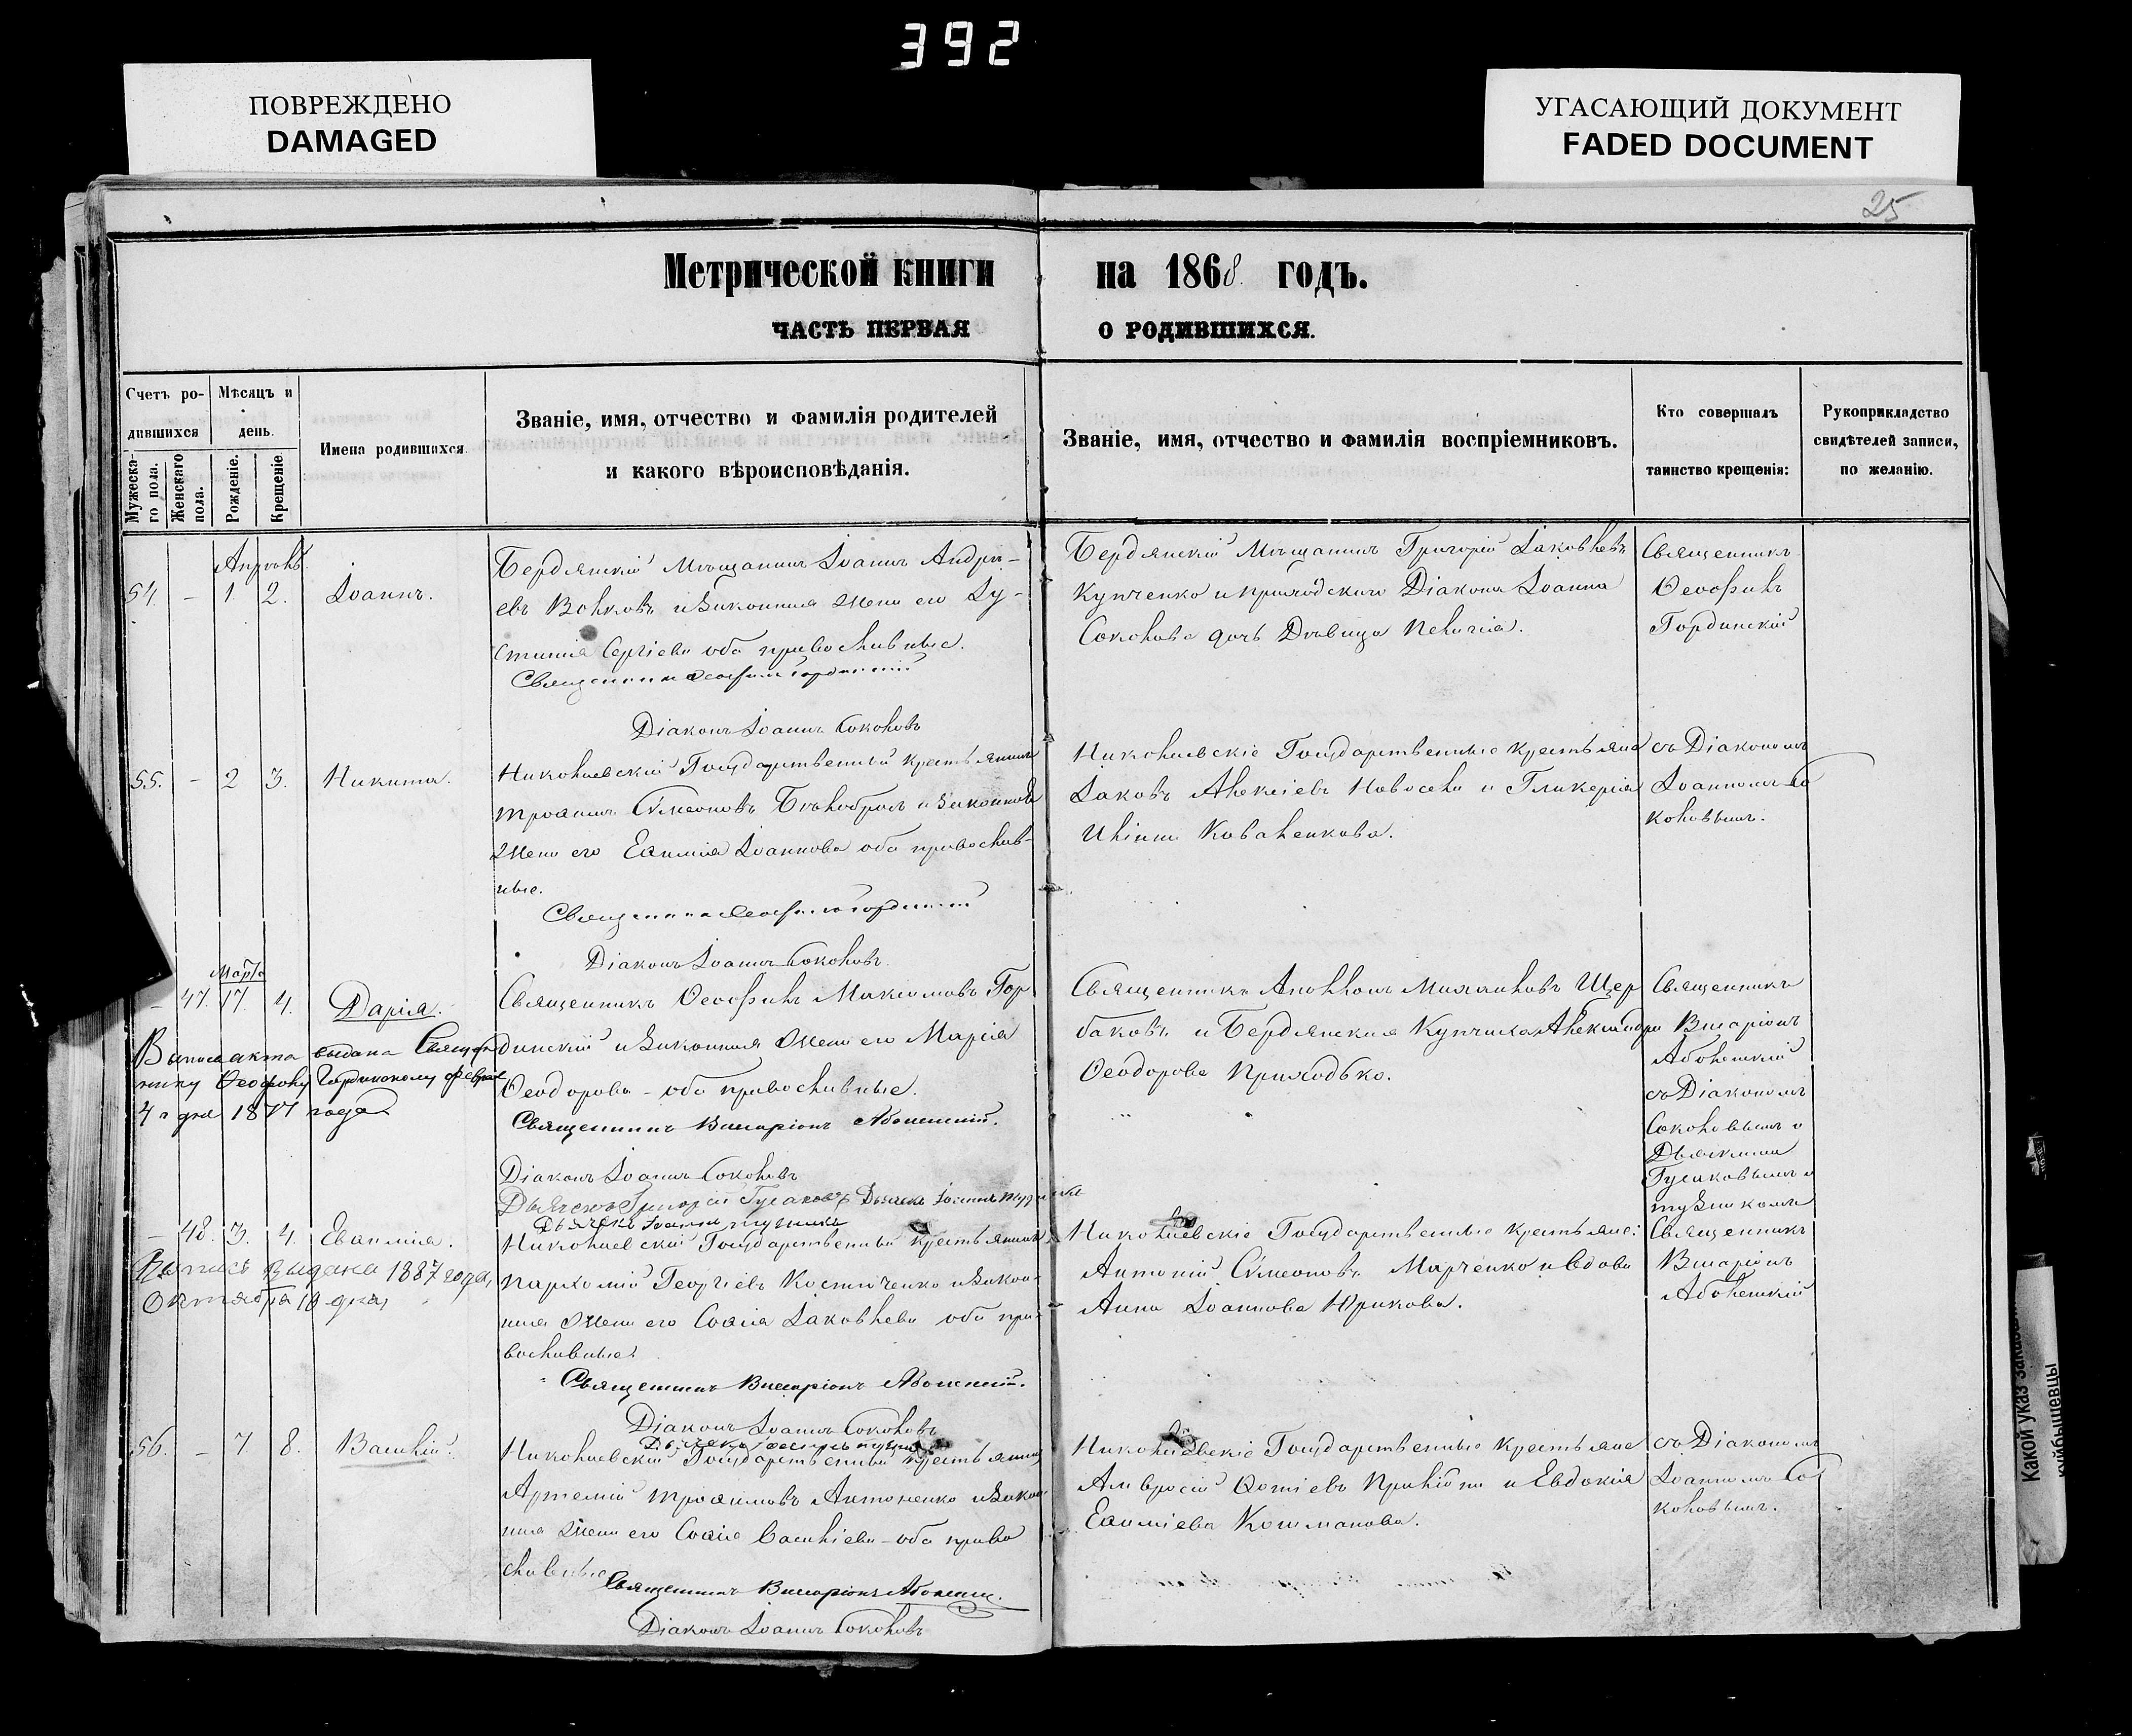 392
ПОВРЕЖДЕНО
DAMAGED
УГАСАЮЩИЙ ДОКУМЕНТ
FADED DOCUMENT
25
Метрической книги на 1868 годъ.
ЧАСТЬ ПЕРВАЯ О РОДИВШИХСЯ.
Счетъ ро-
дившихся
Мужеска-
го пола.
Женскаго
пола.
Мѣсяцъ и
день.
Рожденіе.
Крещеніе
Имена родившихся.
Званіе, имя, отчество и фамилія родителей
и какого вѣроисповѣданія.
Званіе, имя, отчество и фамилія воспріемниковъ.
Кто совершалъ
таинство крещенія:
Рукоприкладство
свидѣтелей записи,
по желанію.
Апрѣль
54. - 1. 2. Іоаннъ.
Бердянскій Мѣщанинъ Іоаннъ Андре-
евъ Волковъ и законная жена его Іу-
стинія Сергіева оба православные.
Священникъ Ѳеофилъ Гординскій
Діаконъ Іоаннъ Соколовъ
Бердянскій Мѣщанинъ Григорій Іаковлевъ
Купченко и приходскаго Діакона Іоанна
Соколова дочь Дѣвица Пелагія.
Священникъ
Ѳеофилъ
Гординскій
55. - 2 3. Никита.
Николаевскій Государственный крестьянинъ
Трофимъ Сѵмеоновъ и законная
жена его Евфимія Іоаннова оба православ-
ные.
Священникъ Ѳеофилъ Гординскій
Діаконъ Іоаннъ Соколовъ
Николаевскіе Государственные крестьяне
Іаковъ Алексіевъ и Гликерія
Иліина Коваленкова.
съ Діакономъ
Іоанномъ Со
коловымъ.
Марта
- 47. 17. 4. Дарія.
Выпись акта выдана Священ
нику Ѳеофилу Гординскому февраля
4 го дня 1877 года
Священникъ Ѳеофилъ Максимовъ Гор
динскій и законная жена его Марія
Ѳеодорова - оба православные.
Священникъ Виссаріонъ
Діаконъ Іоаннъ Соколовъ
Дьячекъ Григорій Гусаковъ
Священникъ Аполлонъ Михаиловъ Щер
баковъ и Бердянская Купчиха Александра
Ѳеодорова Приходько.
Священникъ
Виссаріонъ
съ Діакономъ
Соколовымъ и
Дьячками
Гусаковымъ и
- 48. 3. 4. Евфимія.
Выпись выдана 1887 года,
Октября 10 дня,
Николаевскій Государственный крестьянинъ
Пархомій Георгіевъ Костюченко и закон-
ная жена его Софія Іаковлева оба пра-
вославные.
Священникъ Виссаріонъ
Діаконъ Іоаннъ Соколовъ
Николаевскіе Государственные крестьяне:
Антоній Сѵмеоновъ Марченко и вдова
Анна Іоаннова Юрикова.
Священникъ
Виссаріонъ
56. - 7 8. Василій.
Николаевскій Государственный крестьянинъ
Артемій Трофимовъ Антоненко и закон
ная жена его Софія Василіева - оба право
славные
Священникъ Виссаріонъ
Діаконъ Іоаннъ Соколовъ
Николаевскіе Государственные крестьяне
Амвросій и Евдокія
Евфиміева Кошманова.
съ Діакономъ
Іоанномъ Со
коловымъ.